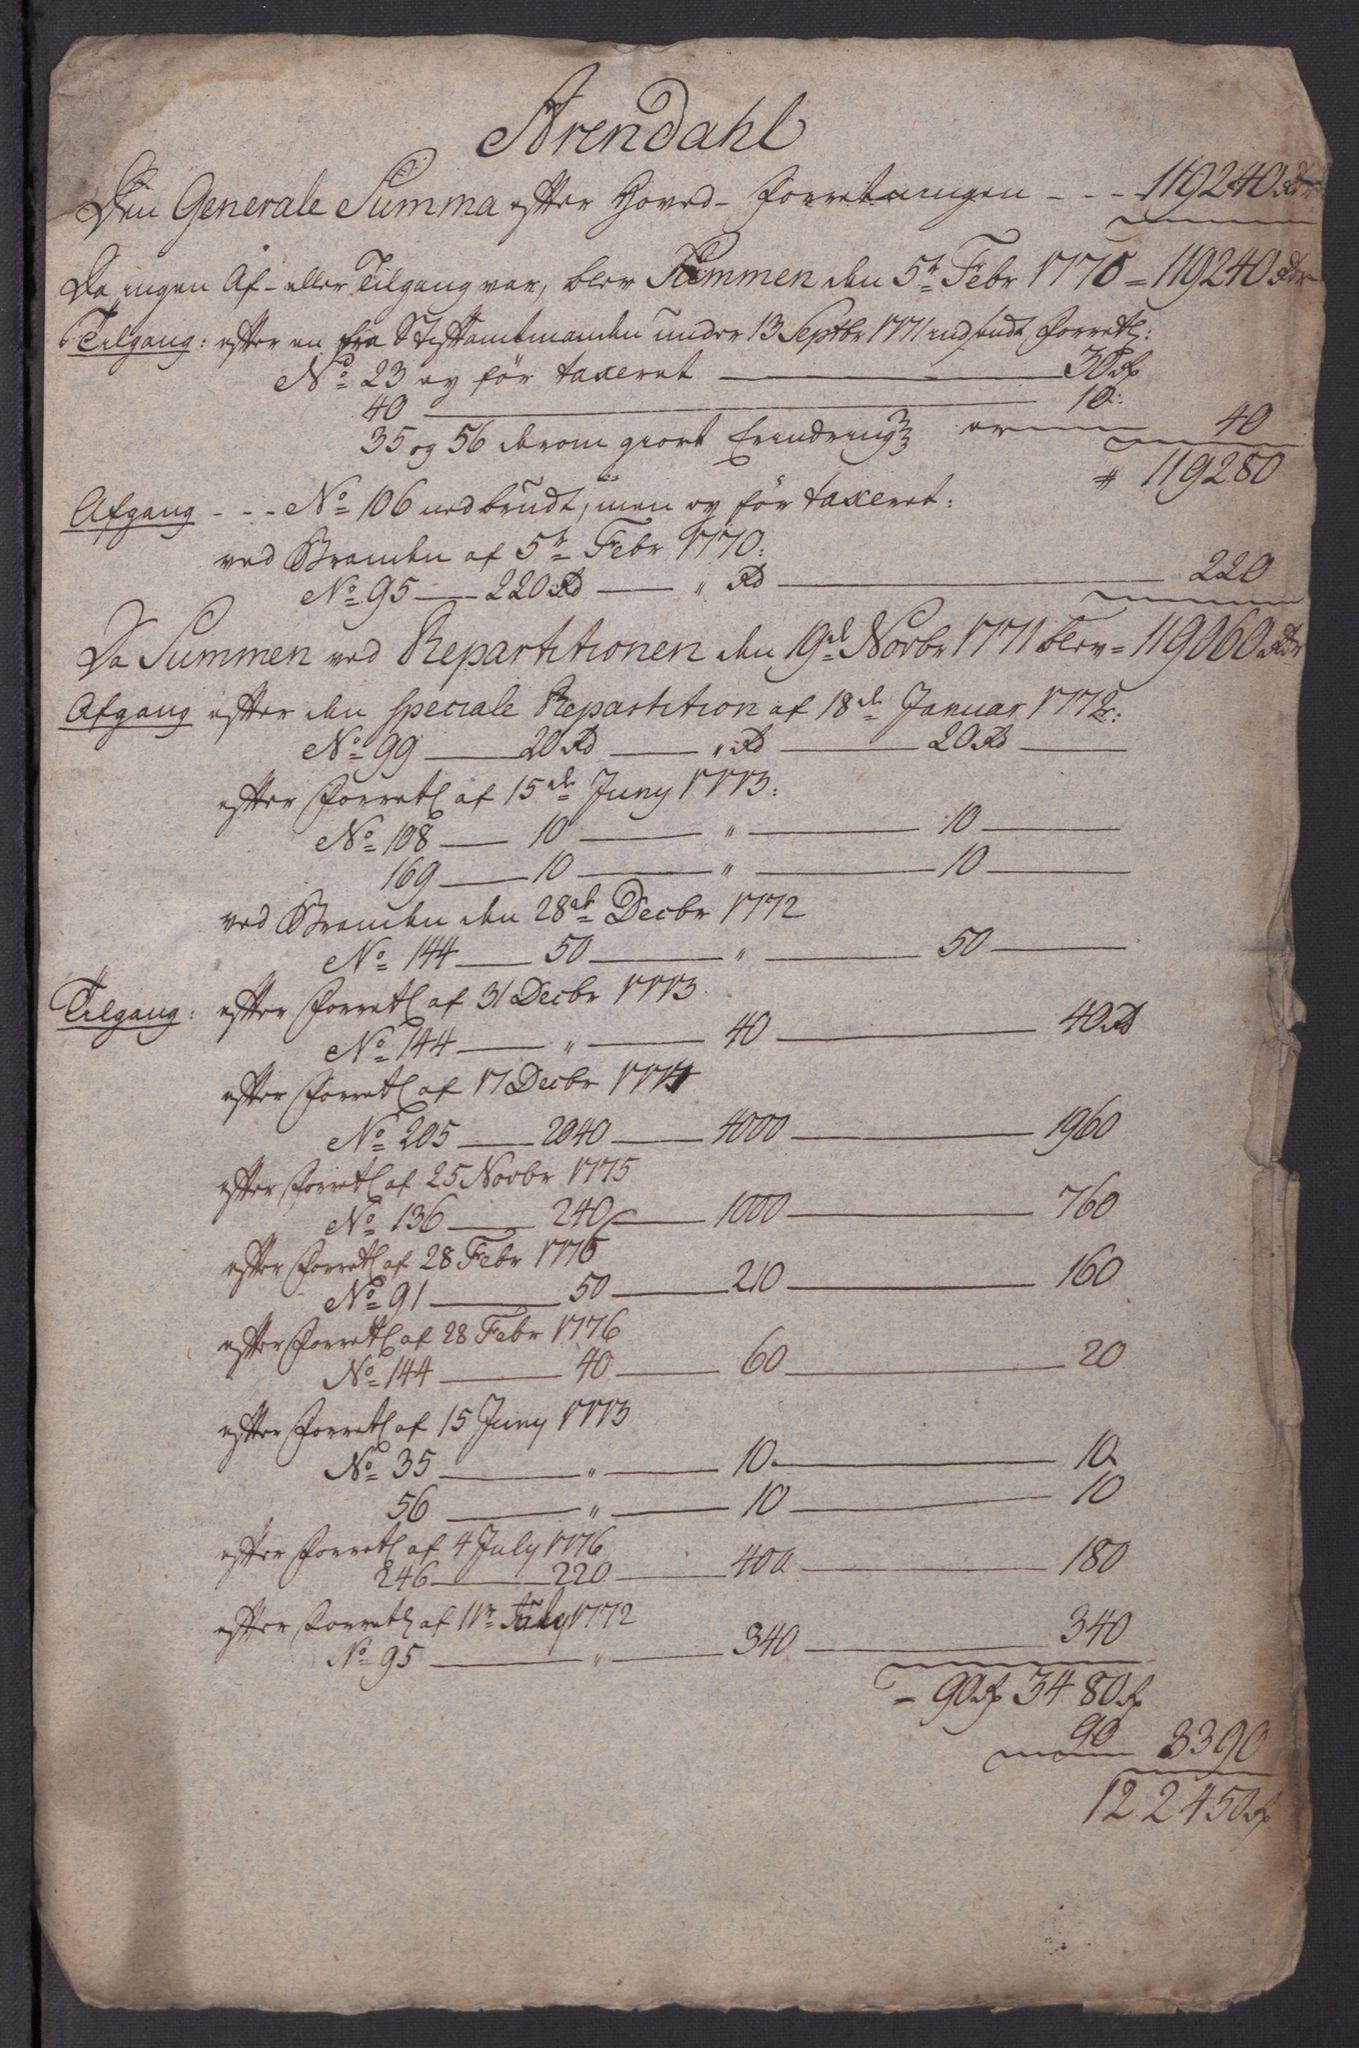 Arendahl
Den Generale Summa efter Hoved-Forretningen - - - 119240 Rdr
Da ingen Af- eller Tilgang var, blev Summen den 5te Febr 1770 = 119240 Rdr
Tilgang: efter en fra Stiftamtmanden under 13 Septbr 1771 indsendt Forretl:
No 23 ey før taxeret — 30 Rd
40 — 10:
35 og 56 derom giort Erindring er — 40
# 119280
Afgang - - - No 106 nedbrudt, men ey før taxeret:
ved Branden af 5te Febr 1770:
No 95 — 220 Rd — " Rd — 220
Da Summen ved Repartitionen den 19de Novbr 1771 blev = 119060 Rdr
Afgang efter den speciale Repartition af 18de Januar 1772:
No 99 — 20 Rd — " Rd — 20 Rd —
efter Forretl af 15de Juny 1773:
No 108 — 10 — " — 10 —
169 — 10 — " — 10 —
ved Branden den 28de Decbr 1772
No 144 — 50 — " — 50 —
Tilgang: efter Forretl af 31 Decbr 1773
No 144 — " — 40 — 40 Rd
efter Forretl af 17 Decbr 1774
No 205 — 2040 — 4000 — 1960
efter Forretl af 25 Novbr 1775
No 136 — 240 — 1000 — 760
efter Forretl af 28 Febr 1776
No 91 — 50 — 210 — 160
efter Forretl af 28 Febr 1776
No 144 — 40 — 60 — 20
efter Forretl af 15 Juny 1773
No 35 — " — 10 — 10
56 — " — 10 — 10
efter Forretl af 4 July 1776
246 — 220 — 400 — 180
efter Forretl af 11te July 1772
No 95 — " — 340 — 340
- 90 Rd 3480 Rd
90 3390
122450 Rd